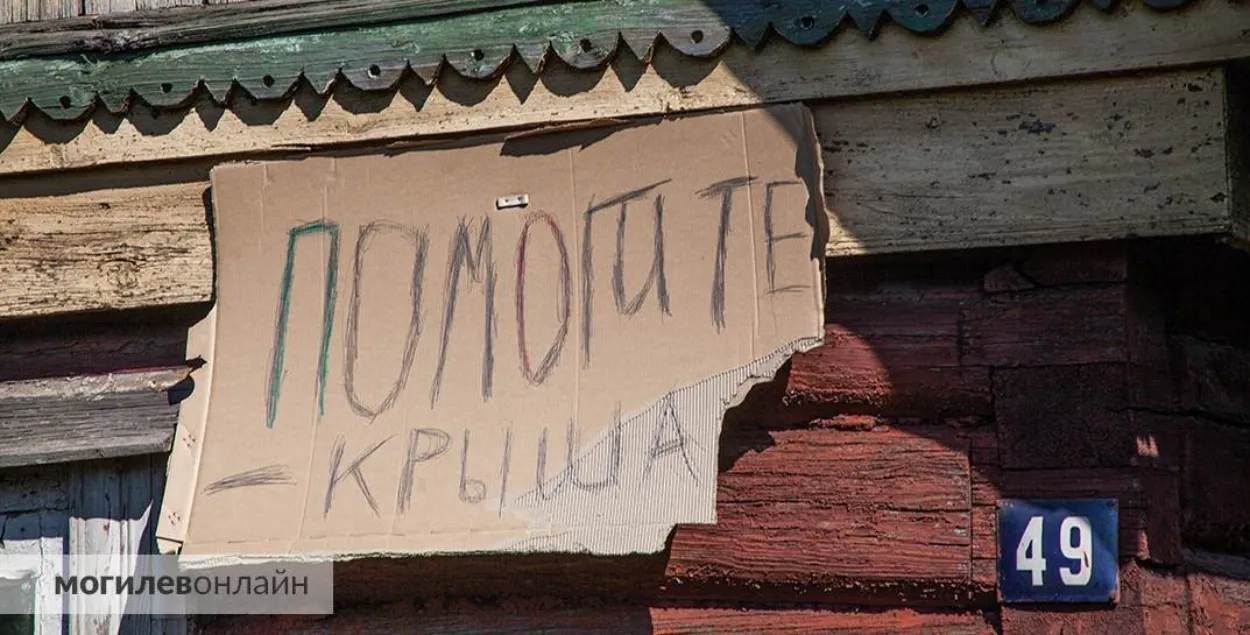 ПОМОГИТЕ
– КРЫША
49
могилевонлайн